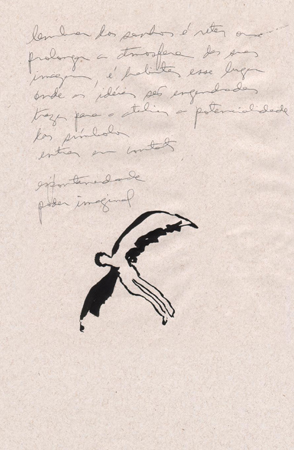 lembrar dos sonhos é reter
prolongar a atmosfera das suas
imagens, é habitar esse lugar
onde as idéias são engendradas
trazer para o atelier a potencialidade
dos símbolos
entrar em contato
espontaneidade
poder imaginal